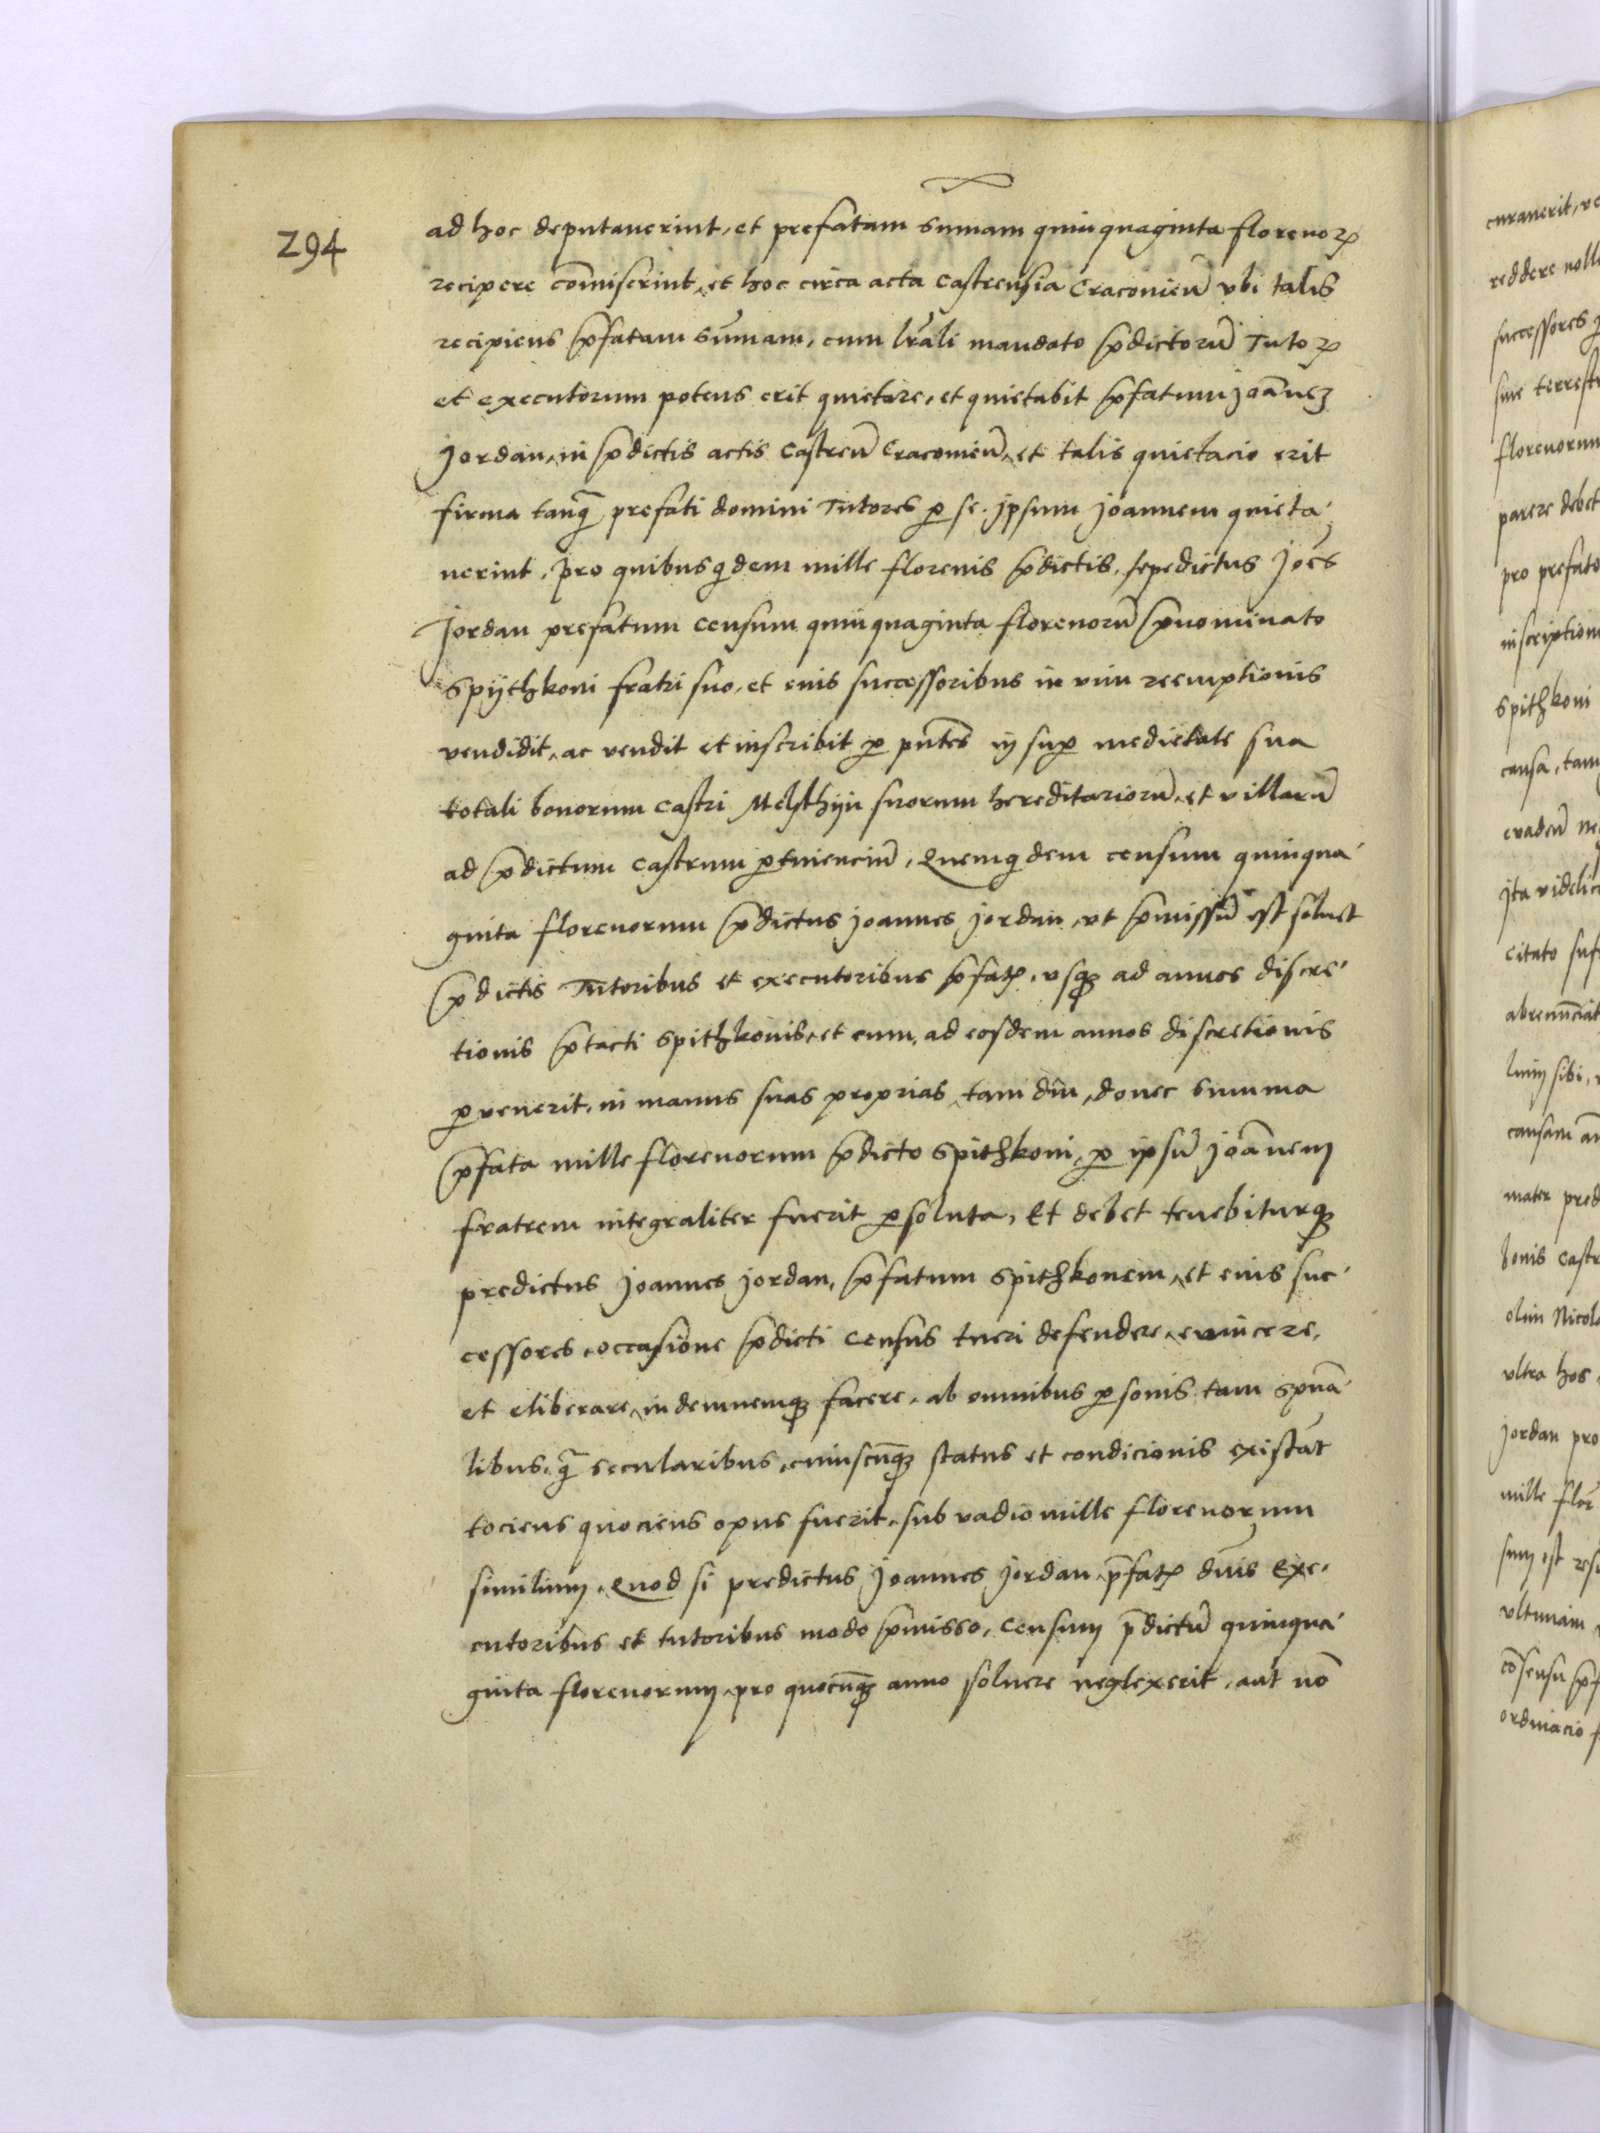 294
ad hoc deputauerint, et prefatam summam quinquaginta florenoꝝ
recipere com̄iserint, et hoc circa acta Castrensia Cracouien̄ vbi talis
recipiens p̄fatam sum̄am, cum l̄rali mandato p̄dictorū Tutoꝝ
et executorum potens erit quietare, et quietabit p̄fatum Joānez
Jordan, in p̄dictis actis Castren̄ Cracouien̄, et talis quietacio erit
firma tanq̄ prefati domini Tutores ꝑ se ipsum Joannem quieta
uerint, Pro quibusquidem mille florenis p̄dictis, sepedictus Joēs
Jordan prefatum censum quinquaginta florenorū p̄nominato
Spythkoni fratri suo, et eius successoribus in vim reemptionis
vendidit, ac vendit et inscribit ꝑ pn̄tes in suꝑ medietate sua
totali bonorum castri Melsthyn suorum hereditariorū, et villarū
ad p̄dictum castrum ꝑtinenciū, Quemquidem censum quinqua
ginta florenorum p̄dictus Joannes Jordan, vt p̄missū est soluet
p̄dictis Tutoribus et executoribus p̄fatꝭ, vsqꝫ ad annos discre
tionis p̄tacti Spithkonis, et cum ad eosdem annos discretionis
ꝑuenerit, in manus suas proprias, tam diu, donec summa
p̄fata mille florenorum p̄dicto Spithkoni, ꝑ ipsū Joānem
fratrem integraliter fuerit ꝑsoluta, Et debet tenebiturqꝫ
predictus Joannes Jordan, p̄fatum Spithkonem, et eius suc
cessores, occasione p̄dicti census tueri defendere, euincere,
et eliberare, indemnemqꝫ facere, ab omnibus ꝑsonis, tam spūa
libus, q̄ secularibus, cuiuscūqꝫ status et condicionis existāt
tociens quociens opus fuerit, sub vadio mille florenorum
similium, Quod si predictus Joannes Jordan, p̄fatꝭ dn̄is Exe
cutoribus et tutoribus modo p̄misso, censum p̄dictū quinqua
ginta florenorum, pro quocūqꝫ anno soluere neglexerit, aut nō
curauerit,
reddere
successores
siue
florenorum
parere debet
pro prefato
Spithkoni
causa, tam
Ita
citato
sibi,
causam
mater
olim
vltra hos
Jordan pro
mille
est
vltimam
ordinacio